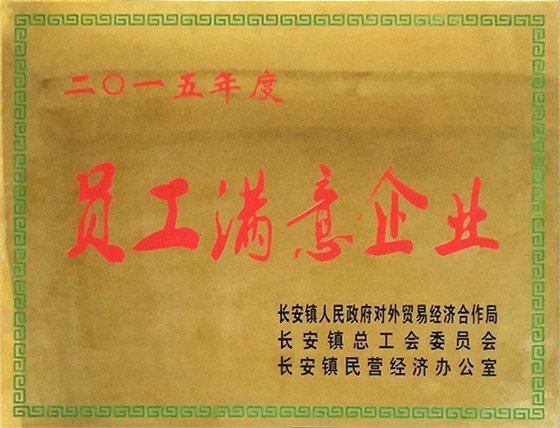 二〇一五年度
员工满意企业
长安镇人民政府对外贸易经济合作局
长安镇总工会委员会
长安镇民营经济办公室